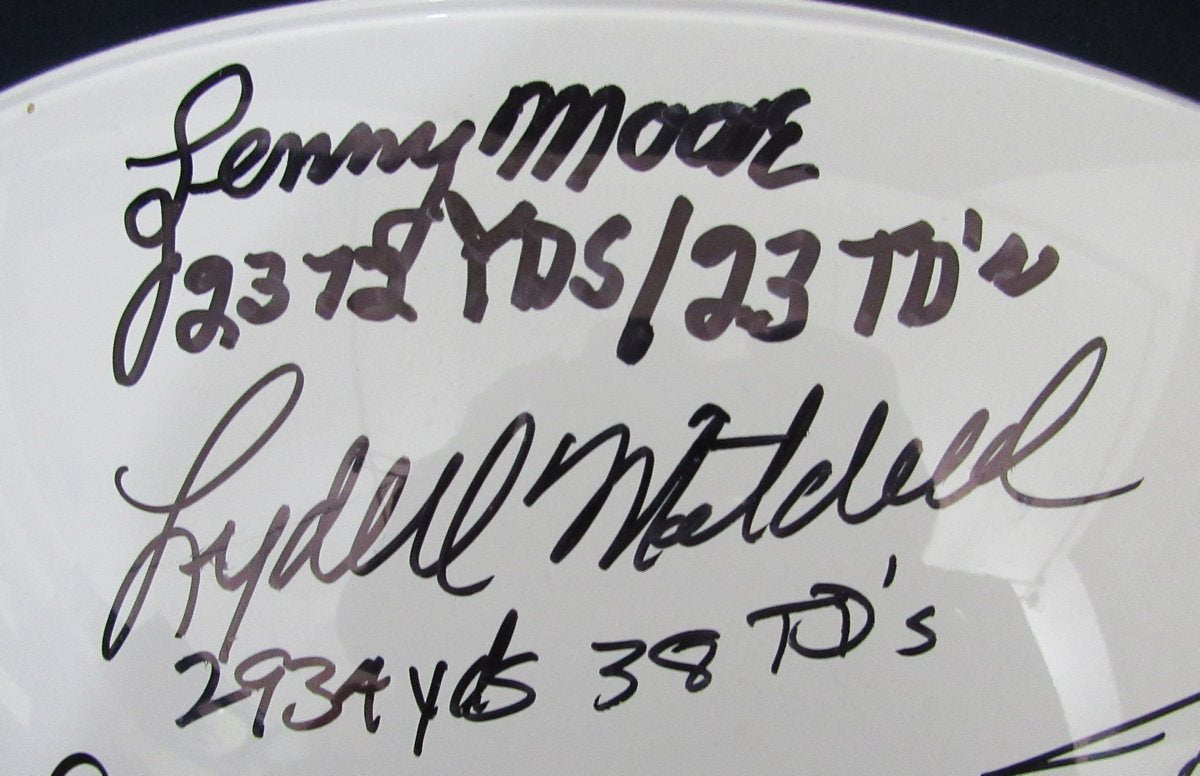 Lenny Moore
2378 YDS/23 TD's
Lydell Mitchell
2934 yds 38 TD's